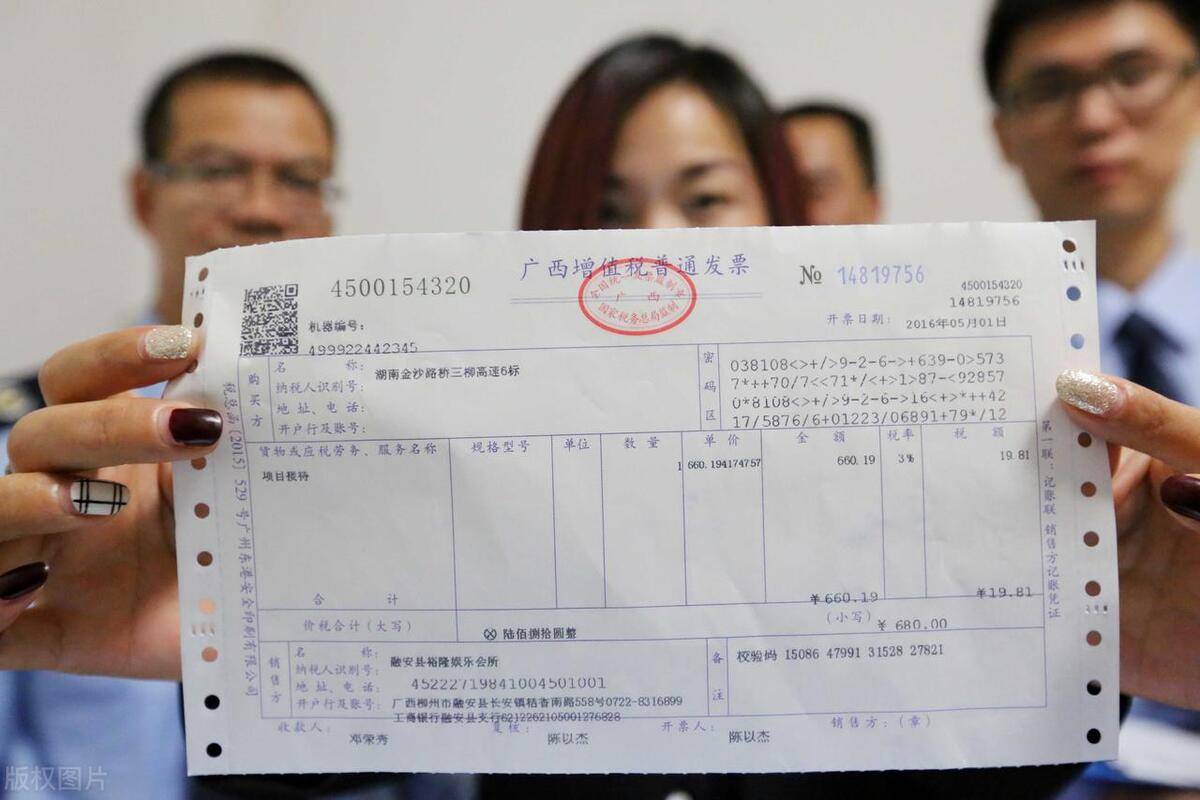 广西增值税普通发票
4500154320
№ 14819756
4500154320
14819756
全国统一发票监制章
广 西
国家税务总局监制
机器编号:
499922442345
开票日期: 2016年05月01日
购买方
名 称: 湖南金沙路桥三柳高速6标
纳税人识别号:
地 址、电 话:
开户行及账号:
密码区
038108<>+/>9-2-6->+639-0>573
7*++70/7<<71*/<+>1>87-<92857
0*8108<>+/>9-2-6->16<+>*++42
17/5876/6+01223/06891+79*/12
货物或应税劳务、服务名称 规格型号 单位 数 量 单 价 金 额 税率 税 额
项目接待 1 660.194174757 660.19 3% 19.81
合 计 ¥660.19 ¥19.81
价税合计(大写) ⊗ 陆佰捌拾圆整 (小写) ¥ 680.00
销售方
名 称: 融安县裕隆娱乐会所
纳税人识别号: 45222719841004501001
地 址、电 话: 广西柳州市融安县长安镇桔香南路558号0722-8316899
开户行及账号: 工商银行融安县支行6212262105001276828
备注
校验码 15086 47991 31528 27821
收款人: 邓荣秀 复核: 陈以杰 开票人: 陈以杰 销售方:(章)
税总函〔2015〕529号广州东港安全印刷有限公司
第一联:记账联 销售方记账凭证
版权图片